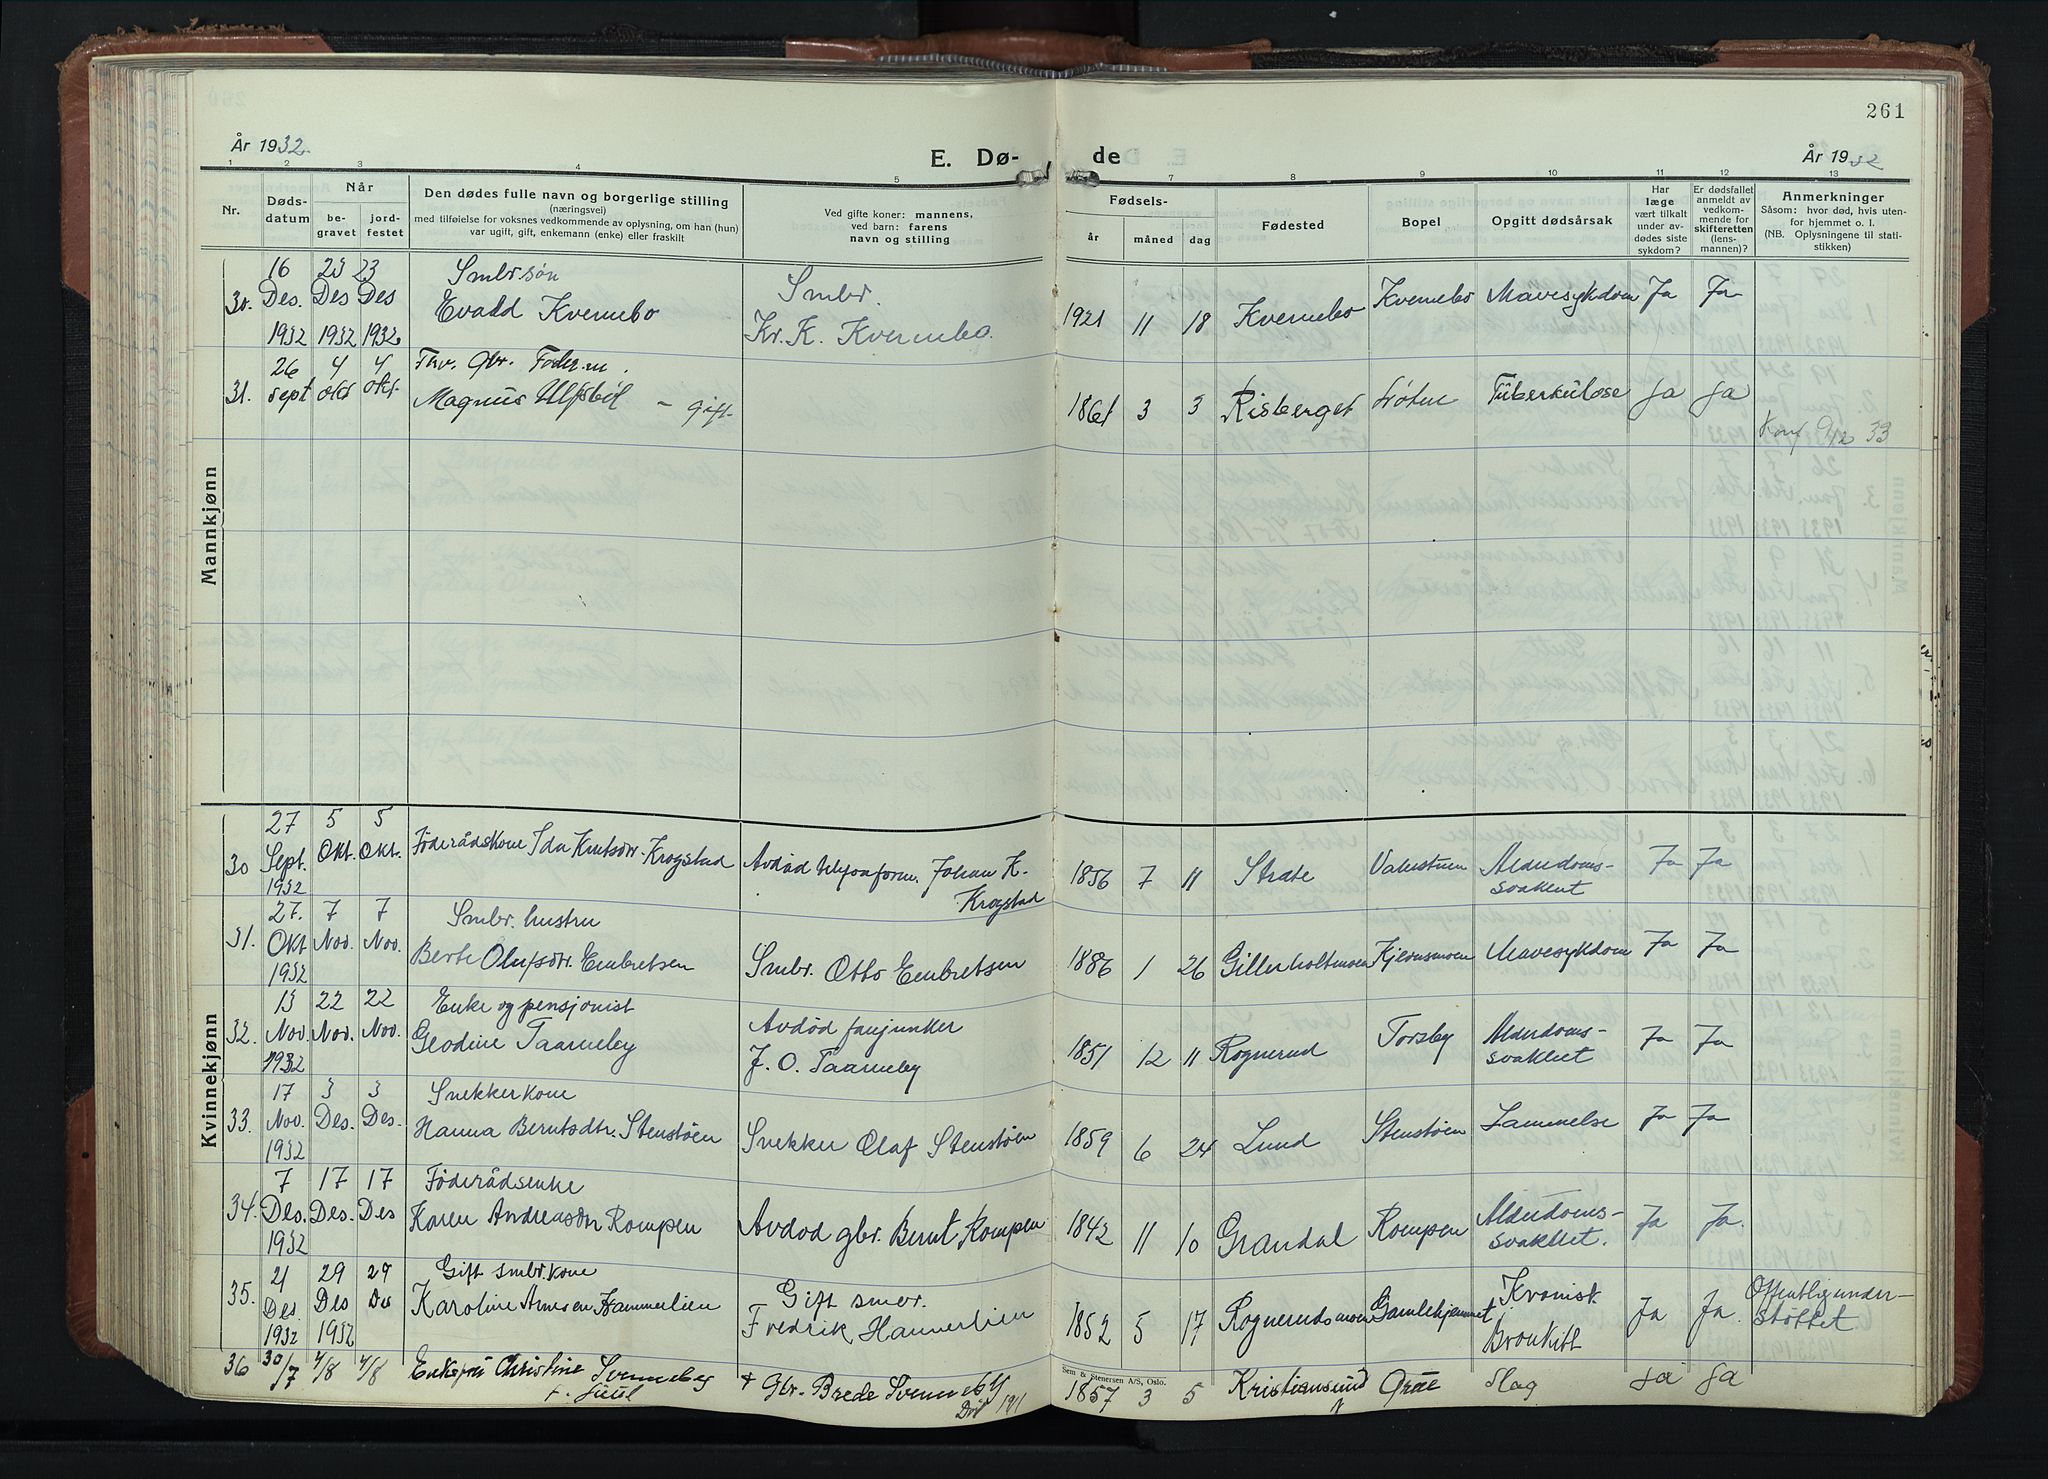 261
År 1932.
E. Dø-
de
År 1932
1 2 3 4 5 7 8 9 10 11 12 13
Nr.
Døds-
datum
Når
be-
gravet
jord-
festet
Den dødes fulle navn og borgerlige stilling
(næringsvei)
med tilføielse for voksnes vedkommende av oplysning, om han (hun)
var ugift, gift, enkemann (enke) eller fraskilt
Ved gifte koner: mannens,
ved barn: farens
navn og stilling
Fødsels-
år
måned
dag
Fødested
Bopel
Opgitt dødsårsak
Har
læge
vært tilkalt
under av-
dødes siste
sykdom?
Er dødsfallet
anmeldt av
vedkom-
mende for
skifteretten
(lens-
mannen)?
Anmerkninger
Såsom: hvor død, hvis uten-
for hjemmet o. l.
(NB. Oplysningene til stati-
stikken)
Mannkjønn
30. 16 Des. 1932 23 Des 1932 23 Des 1932. Smbr.søn
Evald Kvernebo Smbr.
Kr. K. Kvernebo. 1921 11 18 Kvernebo Kvernebo Mavesykdom Ja Ja
31. 26 sept 4 okt 4 okt. Fhv. Gbr.
Magnus Ulfsbøl - gift. 1861 3 3 Risberget Tuberkulose Ja Ja
Konf 9/12 33
Kvinnekjønn
30 27 Sept. 1932 5 Okt. 5 Okt. Föderådskone Ida Knutsdtr. Krogstad Avdöd telefonform. Johan K.
Krogstad 1856 7 11 Strate Alderdoms-
svakhet Ja Ja
31. 27. Okt 1932 7 Nov. 7 Nov. Smbr. hustru
Berte Olufsdtr. Embretsen Smbr. Otto Embretsen 1886 1 26 Gillerholtmoen Kjernsmoen Mavesykdom Ja Ja
32. 13 Nov. 1932 22 Nov. 22 Nov. Enke og pensjonist
Geodine Taarneby Avdöd fanejunker
J. O. Taarneby 1851 12 11 Rognerud Torsby Alderdoms-
svakhet Ja Ja
33. 17 Nov. 1932 3 Des. 3 Des. Snekkerkone
Hanna Berntsdtr. Stenstöen Snekker Olaf Stenstöen 1859 6 24 Lund Stenstöen Lammelse Ja Ja
34. 7 Des. 1932 17 Des. 17 Des Föderådsenke
Karen Andreasdtr Rompen Avdöd gbr. Bernt Rompen 1842 11 10 Grandal Rompen Alderdoms-
svakhet. Ja Ja.
35. 21 Des. 1932 29 Des 1932 29 Des Gift smbr.kone
Karoline Arnesen Hammerlien Gift smbr.
Fredrik Hammerlien 1852 5 17 Rognerudsmoen Gamlehjemmet Kronisk
Bronkitt Ja Ja. Offentlig under-
støttet
36 30/7 4/8 4/8 Enkefru Christine Svenneby
f. Juul + Gbr. Brede Svenneby
Död 1911 1857 3 5 Kristiansund
N Grue Slag Ja Ja
Sem & Stenersen A/S, Oslo.